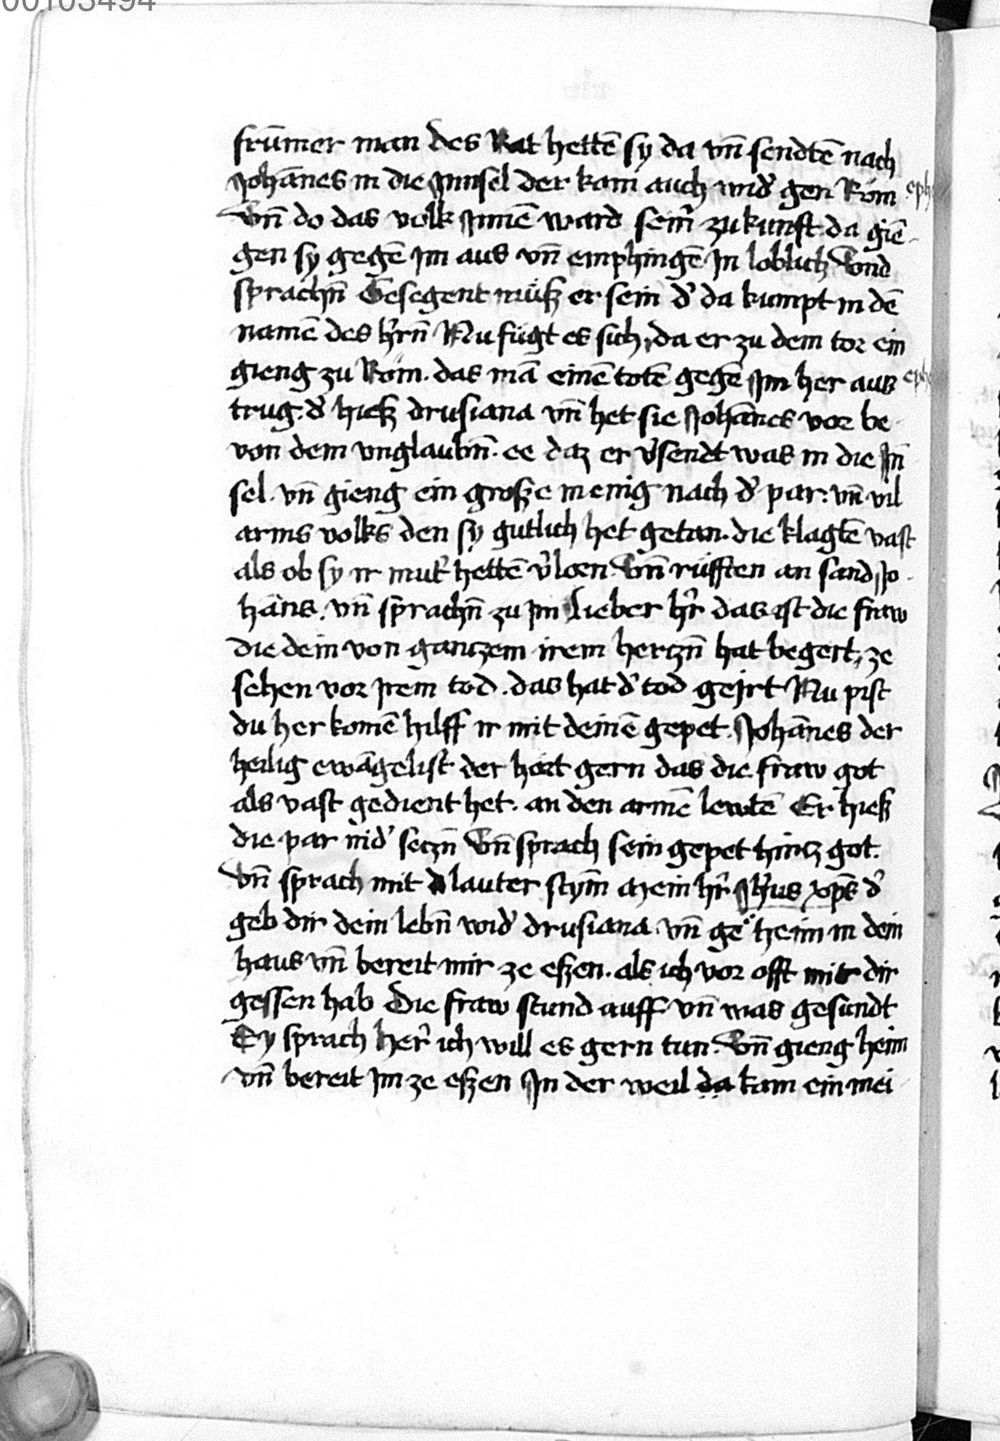 00103494
frūmer man des Rat hettē sy da vn̄ sendtē nach
Johānes in die Jnnsel der kam auch wid' gen Rom eph
Vn̄ do das volk Jnnen ward seinr zukunft da giē-
gen sy gegē Jm aus vn̄ emphingē Jn loblich Vnd
sprachn̄ Gesegent müsz er sein d' da kumpt in dē
namē des h'rn̄ Nu fügt es sich, da er zu dem tor ein
gieng zu Rom. das mā einē totē gegē Jm her aus eph
trug. d' hiesz drusiana vn̄ het sie Johānes vor be
von dem vnglaubn̄. ee daz er v'sendt was in die Jn
sel. vn̄ gieng ein grosze menig nach d' par. vn̄ vil
arms volks den sy gutlich het getan. die klagtē vast
als ob sy ir mut' hettē v'loen. Vn̄ rüfften an sand Jo
hāns. vn̄ sprachn̄ zu Jm Lieber h'r das ist die fraw
die dein von ganczem irem herczn̄ hat begert, ze
sehen vor Jrem tod. das hat d' tod geirt Nu pist
du her komē hilff ir mit deinē gepet. Johānes der
heilig ewāgelist der hört gern das die fraw got
als vast gedient het. an den armē lewtē Er hiesz
die par nid' seczn̄ Vn̄ sprach sein gepet hincz got.
Vn̄ sprach mit lauter stym̄ Mein h'r Jh'us xp̄s d'
geb dir dein lebn̄ wid' drusiana vn̄ ge heim in dein
haus vn̄ bereit mir ze eszen. als ich vor offt mit dir
gessen hab Die fraw stund auff vn̄ was gesundt
Ey sprach her' ich will es gern tun. Vn̄ gieng heim
vn̄ bereit Jm ze eszen Jn der weil da kam ein mei